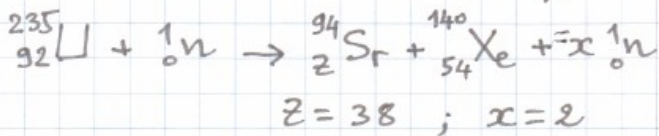 ²³⁵₉₂U + ¹₀n → ⁹⁴_ZSr + ¹⁴⁰₅₄Xe + x ¹₀n
Z = 38 ; x = 2